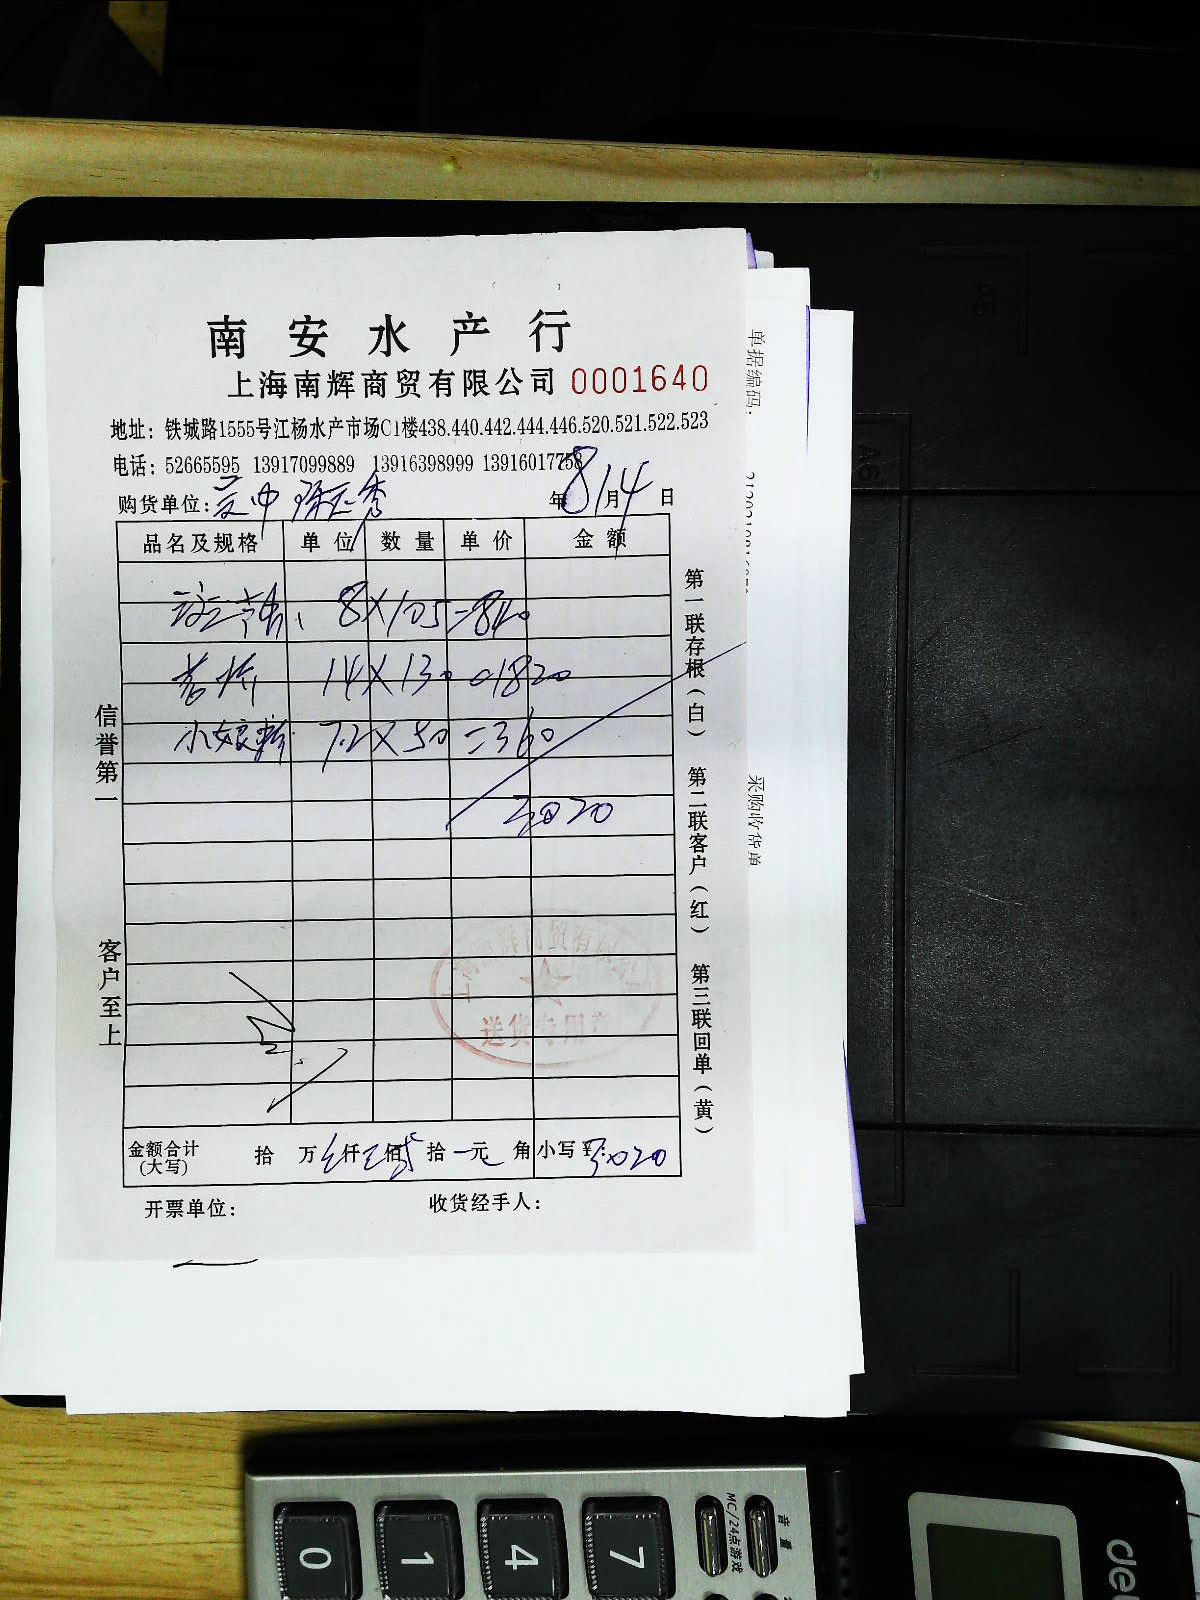 南安水产行
上海南辉商贸有限公司 0001640
地址：铁城路1555号江杨水产市场C1楼438.440.442.444.446.520.521.522.523
电话：52665595 13917099889 13916398999 13916017758
购货单位：
年 8月14日
品名及规格 单位 数量 单价 金额
8×105=840
14×130=1820
7.2×50=360
3020
信誉第一
客户至上
第一联存根（白） 第二联客户（红） 第三联回单（黄）
送货专用章
金额合计（大写） 拾 万 仟 佰 拾 元 角 小写¥：3020
开票单位： 收货经手人：
单据编码：
采购收货单
A5
A6
音量
MC/24点游戏
0 1 4 7
de